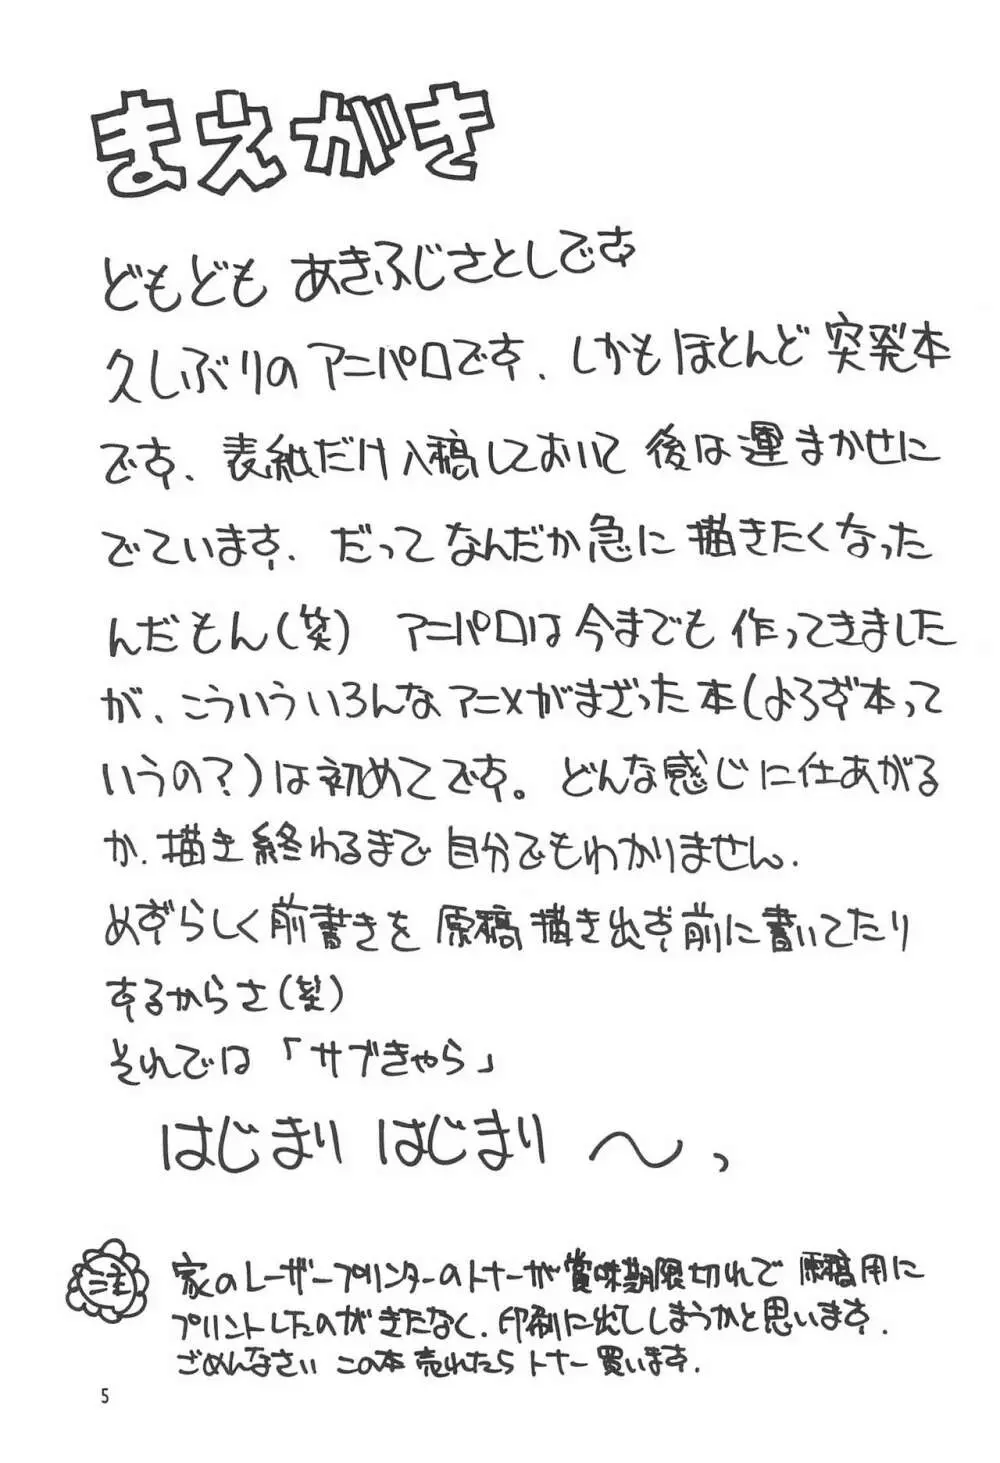 まえがき
どもども あきふじさとしです
久しぶりのアニパロです、しかもほとんど突発本
です、表紙だけ入稿しておいて後は運まかせに
でています、だってなんだか急に描きたくなった
んだもん(笑) アニパロは今までも作ってきました
が、こういういろんなアニメがまざった本(よろず本って
いうの?)は初めてです。どんな感じに仕あがる
か、描き終わるまで自分でもわかりません、
めずらしく前書きを原稿描き出す前に書いてたり
するからさ(笑)
それでは「サブきゃら」
はじまりはじまり〜っ
注
家のレーザープリンターのトナーが賞味期限切れで原稿用に
プリントしたのがきたなく、印刷に出てしまうかと思います、
ごめんなさい この本売れたらトナー買います、
5